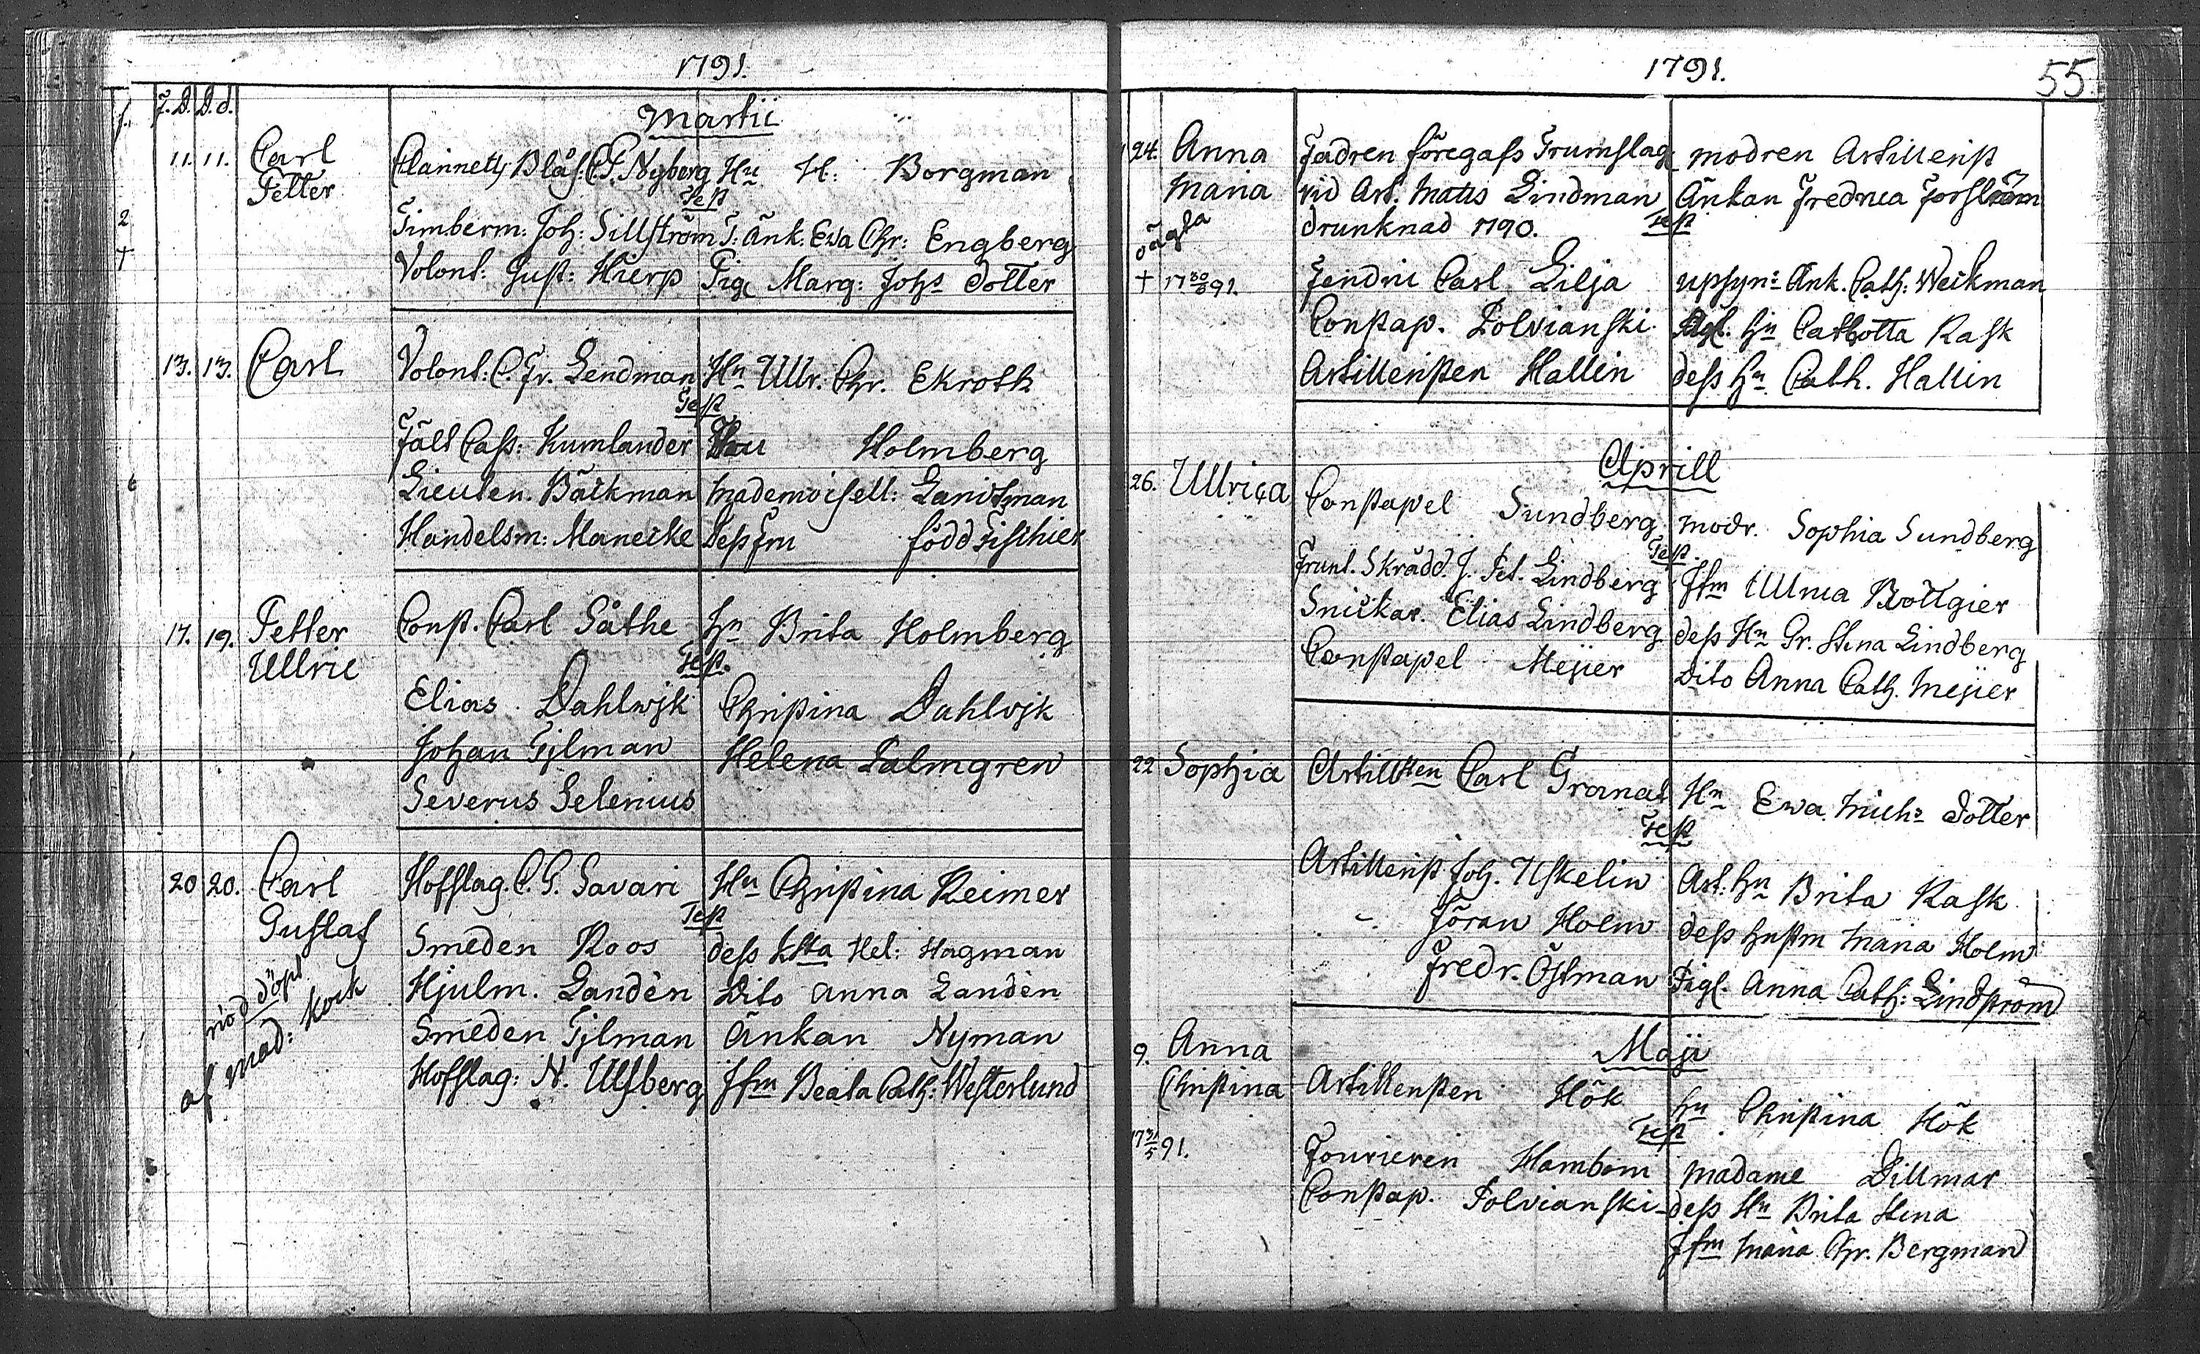 1791.
f. F.D. D.d.
Martii
11. 11. Carl Clarinetts Blås: C. F. Nyberg Hu H: Borgman
Petter Test
2 Timberm: Joh: Sillström T: Änk: Ewa Chr: Engberg
† Volont: Gust: Hierp Pig. Marg: Johs dotter
13. 13. Carl Volont: C. Fr. Lendman Hn Ullr. Chr. Ekroth
Test
Fält Cass: Kumlander Holmberg
Lieuten. Bäckman Mademoisell: Landtman
Handelsm: Manecke Dess Fru född Fischier
17. 19. Petter Const. Carl Såthe hu Brita Holmberg
Ullric Test.
Elias Dahlwjk Christina Dahlvjk
Johan Gjlman Helena Palmgren
Severus Selenius
20 20. Carl Hofslag. C. G. Savari Hu Christina Reimer
Gustaf Test
Smeden Roos dess Hel: Hagman
nöd döpt Hjulm. Landèn Dito Anna Landèn
af Mad: Kock Smeden Gjlman Änkan Nyman
Hofslag: N. Ulfberg Jfru Beata Cath: Westerlund
1791. 55.
24. Anna Fadren föregafs Trumslag modren Artillerist
Maria vid Art. Mats Lindman Änkan Fredrica Forsström
oägta drunknad 1790. Test
† 17 30/6 91. Fendric Carl Lilja upsyn: Änk. Cath: Weckman
Constap. Polvianski hu Rask
Artilleristen Hallin dess hu Cath. Hallin
Aprill
26. Ullrica Constapel Sundberg modr. Sophia Sundberg
Test.
Skrädd. J. Pet. Lindberg Jfru Ullrica Bottgier
Snickar. Elias Lindberg dess Hu Gr. Stina Lindberg
Constapel Meijer Dito Anna Cath. Meijer
22 Sophia Artillsten Carl Granat Hu Ewa Michs dotter
Test
Artillerist Joh. Uskelin Art. hu Brita Rask
- Jöran Holm dess hustru Maria Holm
Fredr. Östman Pigl. Anna Cath: Lindström
Maji
9. Anna Artilleristen Hök hu Christina Hök
Christina Test
17 31/5 91. Fourieren Hambom Madame Dillmar
Constap. Polvianski dess Hu Brita Stina
Jfru Maria Chr. Bergman